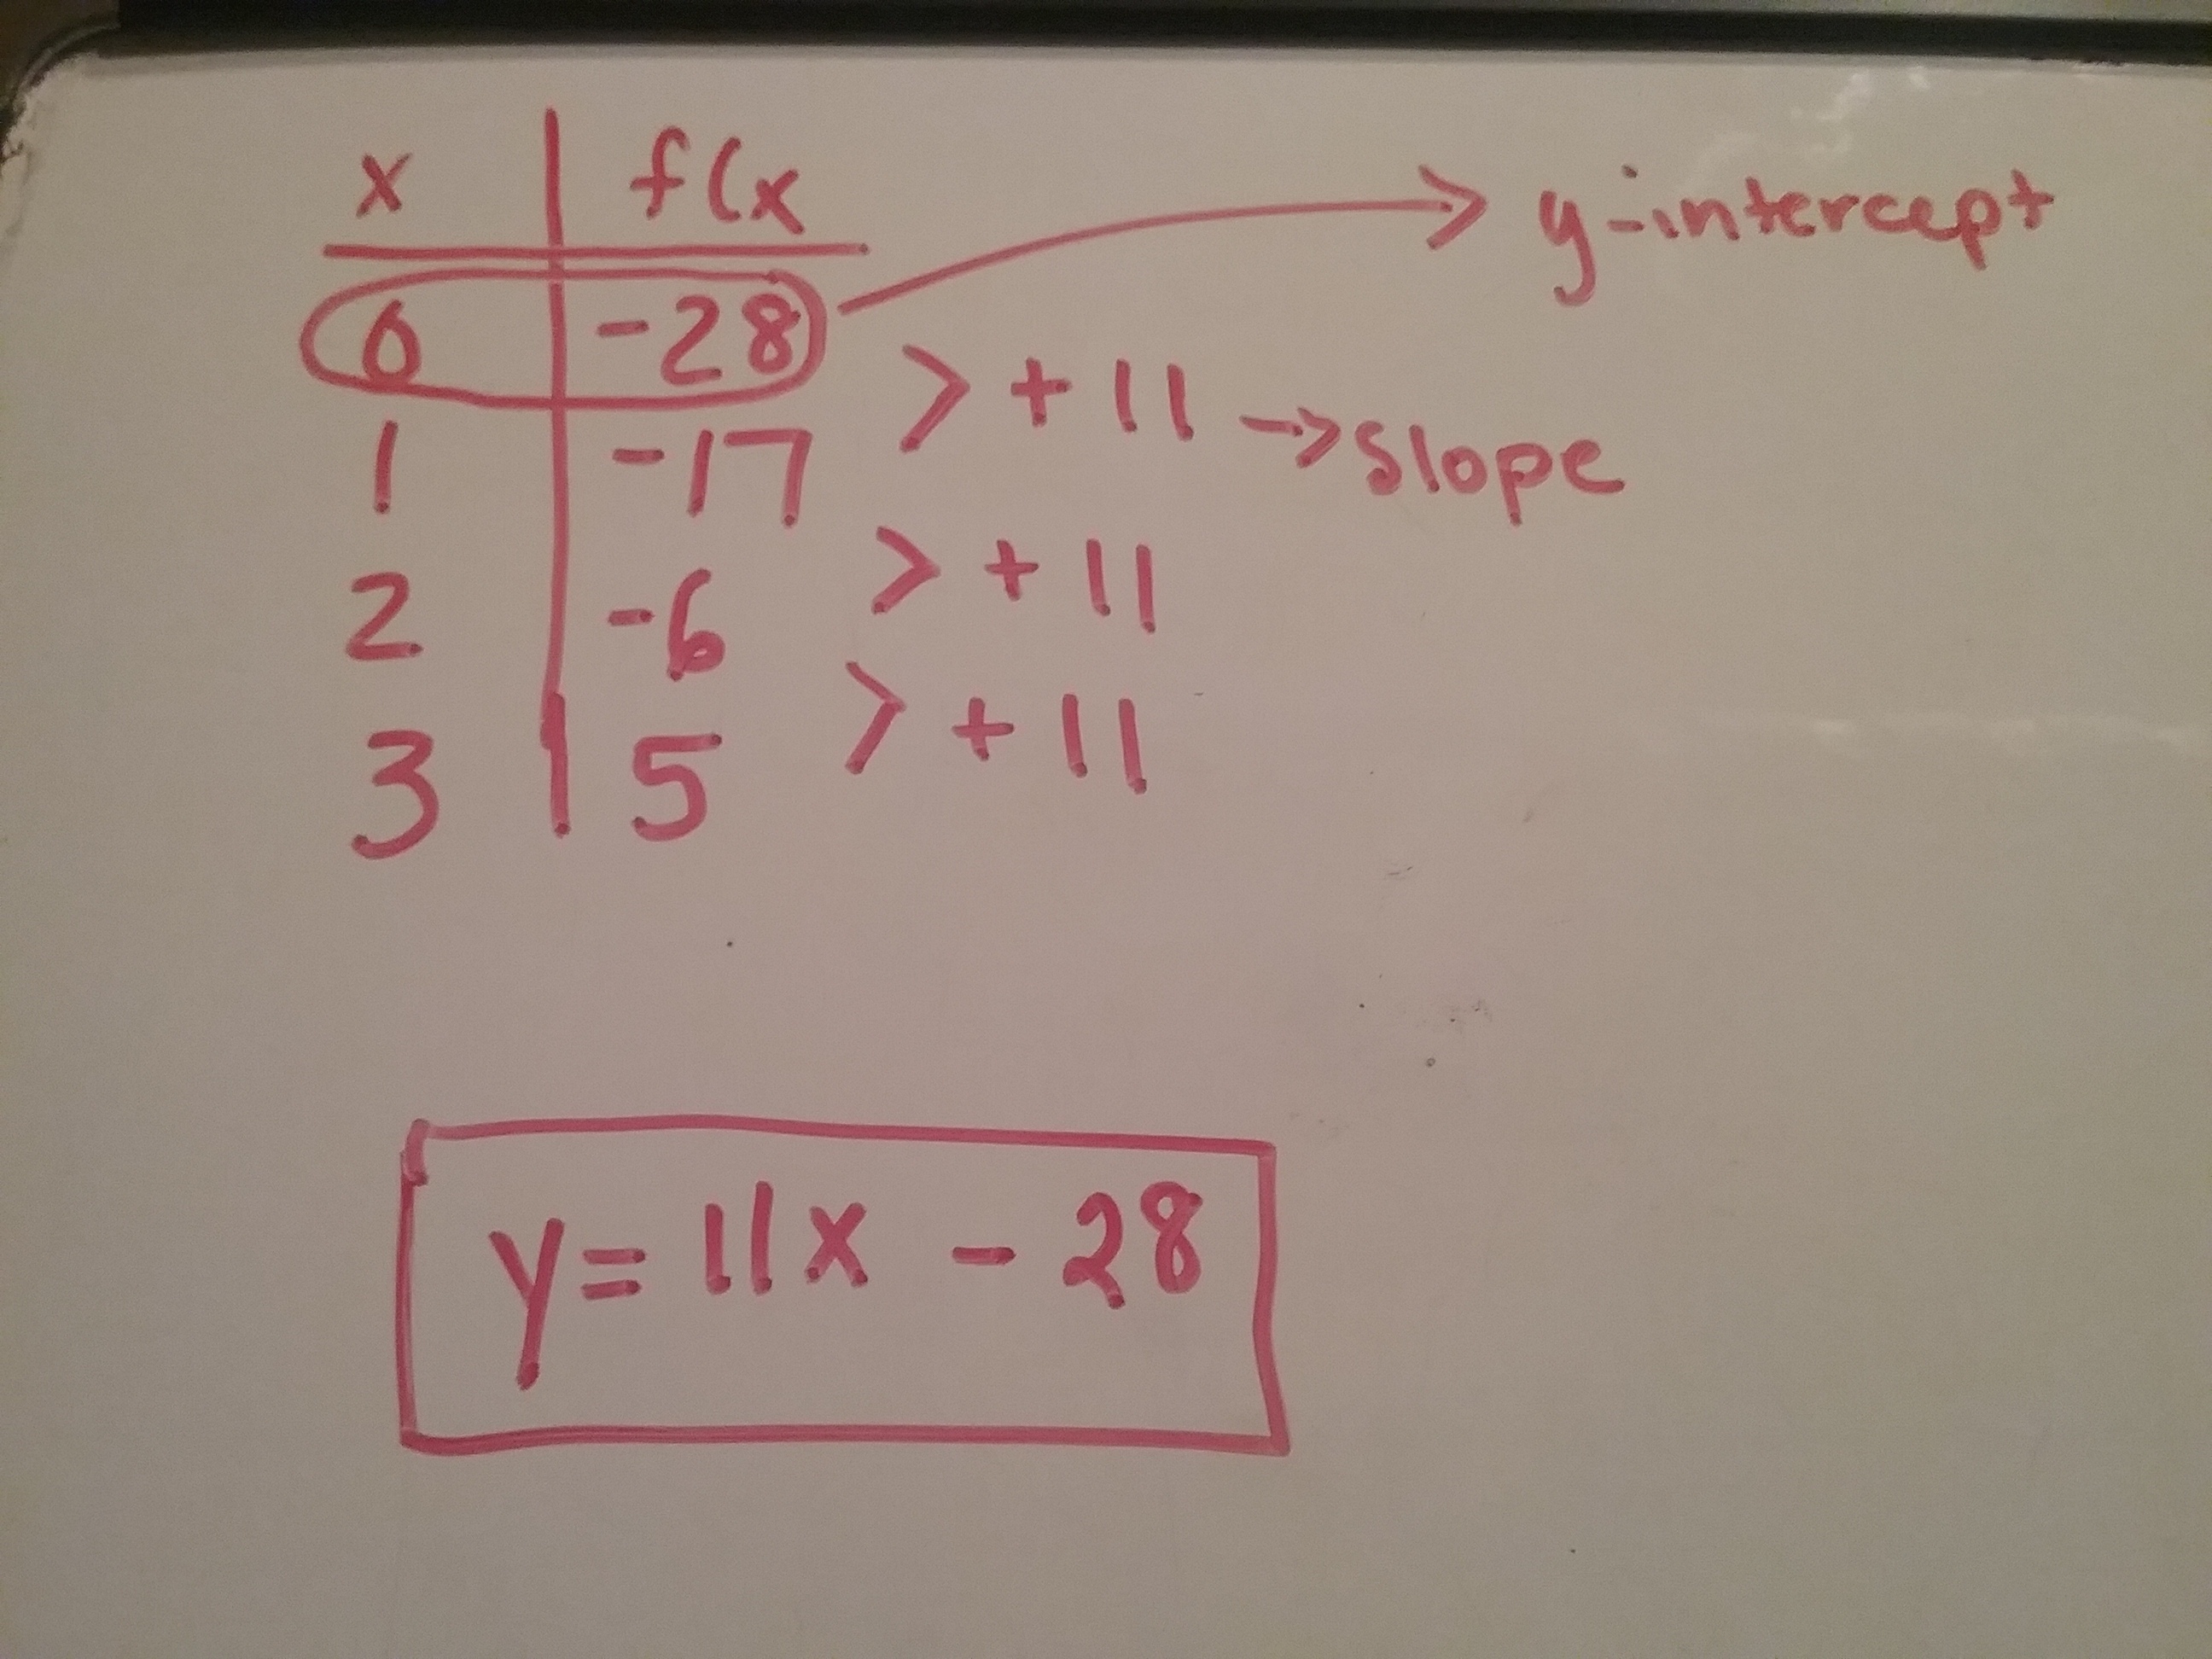 x f(x
0 -28 → y-intercept
> +11 → slope
1 -17
> +11
2 -6
> +11
3 5
y = 11x - 28